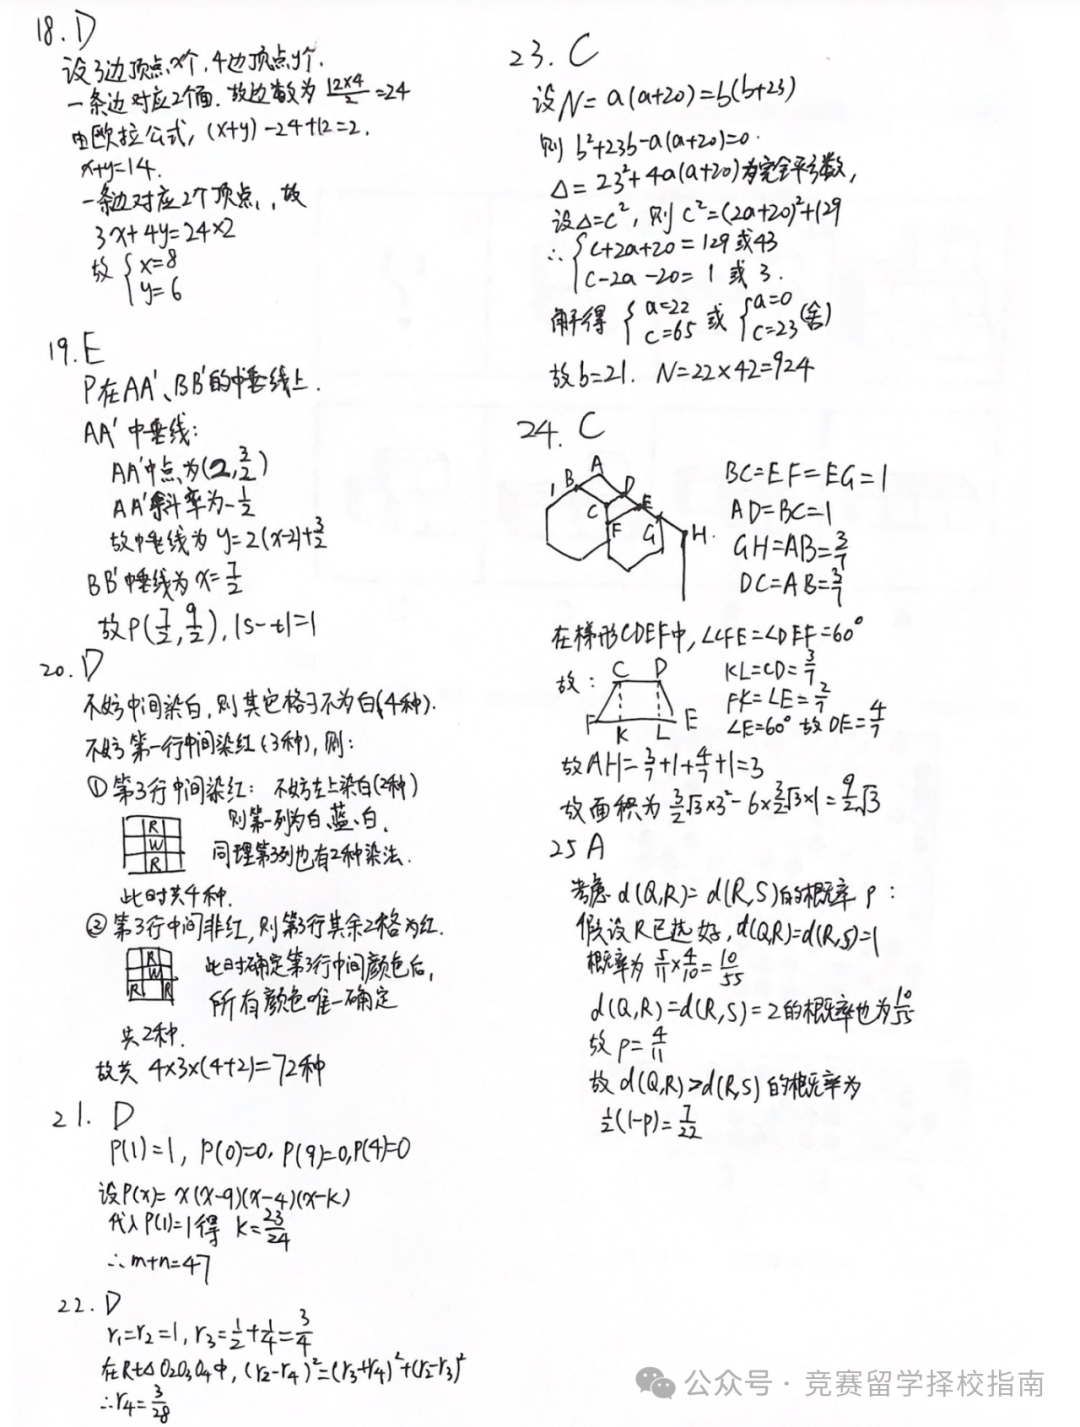 18. D
设3边顶点x个,4边顶点y个.
一条边对应2个面.故边数为 12×4/2 =24
由欧拉公式, (x+y)-24+12=2.
x+y=14.
一条边对应2个顶点,故
3x+4y=24×2
故 { x=8
y=6
19. E
P在AA'、BB'的中垂线上.
AA'中垂线:
AA'中点为(2,3/2)
AA'斜率为-1/2
故中垂线为 y=2(x-2)+3/2
BB'中垂线为 x=7/2
故P(7/2,9/2), |s-t|=1
20. D
不妨中间染白,则其它格子不为白(4种).
不妨第一行中间染红(3种),则:
①第3行中间染红: 不妨左上染白(2种)
R
W
R
则第一列为白、蓝、白.
同理第3列也有2种染法.
此时共4种.
②第3行中间非红,则第3行其余2格为红.
R
W
R R
此时确定第3行中间颜色后,
所有颜色唯一确定
共2种.
故共 4×3×(4+2)=72种
21. D
P(1)=1, P(0)=0, P(9)=0,P(4)=0
设P(x)= x(x-9)(x-4)(x-k)
代入P(1)=1得 k=23/24
∴m+n=47
22. D
r₁=r₂=1, r₃=1/2+1/4=3/4
在Rt△O₂O₃O₄中, (r₂-r₄)²=(r₃+r₄)²+(r₂-r₃)²
∴r₄=3/28
23. C
设N= a(a+20)=b(b+23)
则 b²+23b-a(a+20)=0.
Δ= 23²+4a(a+20)为完全平方数,
设Δ=c², 则 c²=(2a+20)²+129
∴ { c+2a+20=129或43
c-2a-20= 1 或 3.
解得 { a=22
c=65 或 { a=0
c=23 (舍)
故b=21. N=22×42=924
24. C
A
B
1
D
C
E
F
G
H
BC=EF=EG=1
AD=BC=1
GH=AB=3/7
DC=AB=3/7
在梯形CDEF中,∠CFE=∠DEF=60°
故:
C D
F K L E
KL=CD=3/7
FK=LE=2/7
∠E=60° 故DE=4/7
故AH=3/7+1+4/7+1=3
故面积为 3/2√3×3²-6×3/2√3×1=9/2√3
25 A
考虑 d(Q,R)=d(R,S)的概率 P:
假设R已选好, d(Q,R)=d(R,S)=1
概率为 5/11×4/10=10/55
d(Q,R)=d(R,S)=2的概率也为10/55
故 P=4/11
故 d(Q,R)>d(R,S)的概率为
1/2(1-P)=7/22
公众号·竞赛留学择校指南